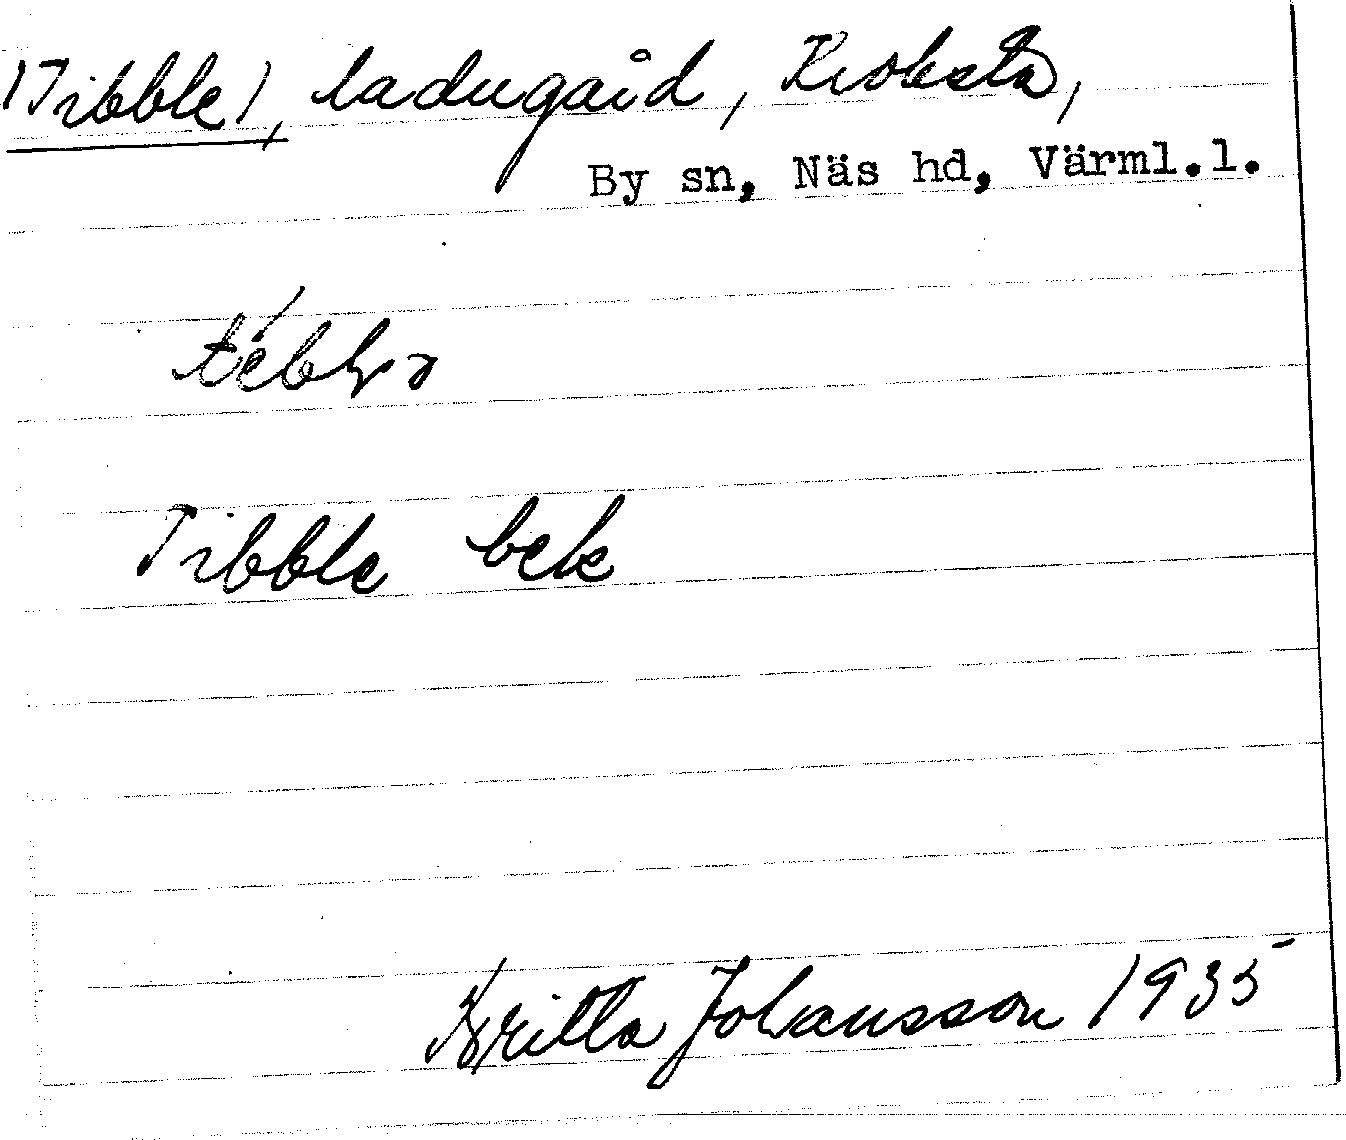 (Tibble), ladugård, Kroksta,
By sn, Näs hd, Värml.l.
Tibble bek
Britta Johansson 1935